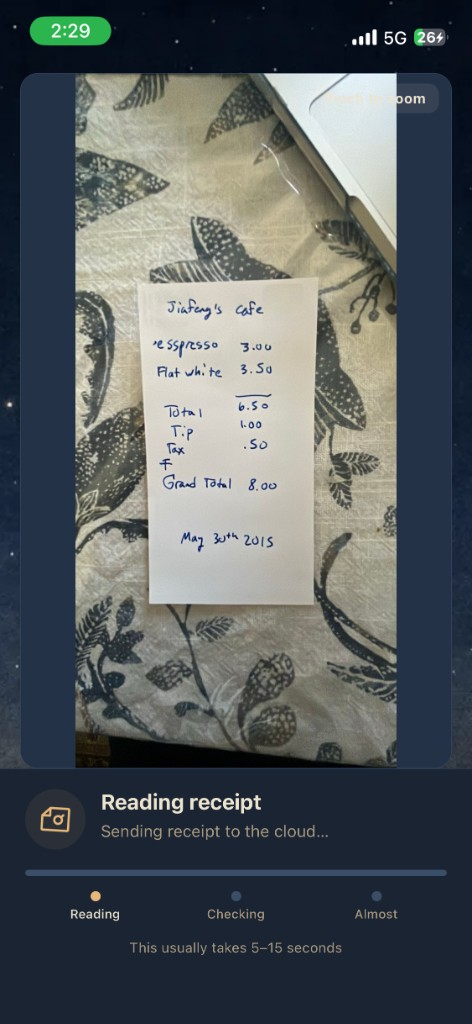 2:29
5G 26
room
Jiafeng's Cafe
esspresso 3.00
Flat white 3.50
Total 6.50
Tip 1.00
Tax .50
Grand Total 8.00
May 30th 2015
Reading receipt
Sending receipt to the cloud...
Reading Checking Almost
This usually takes 5–15 seconds